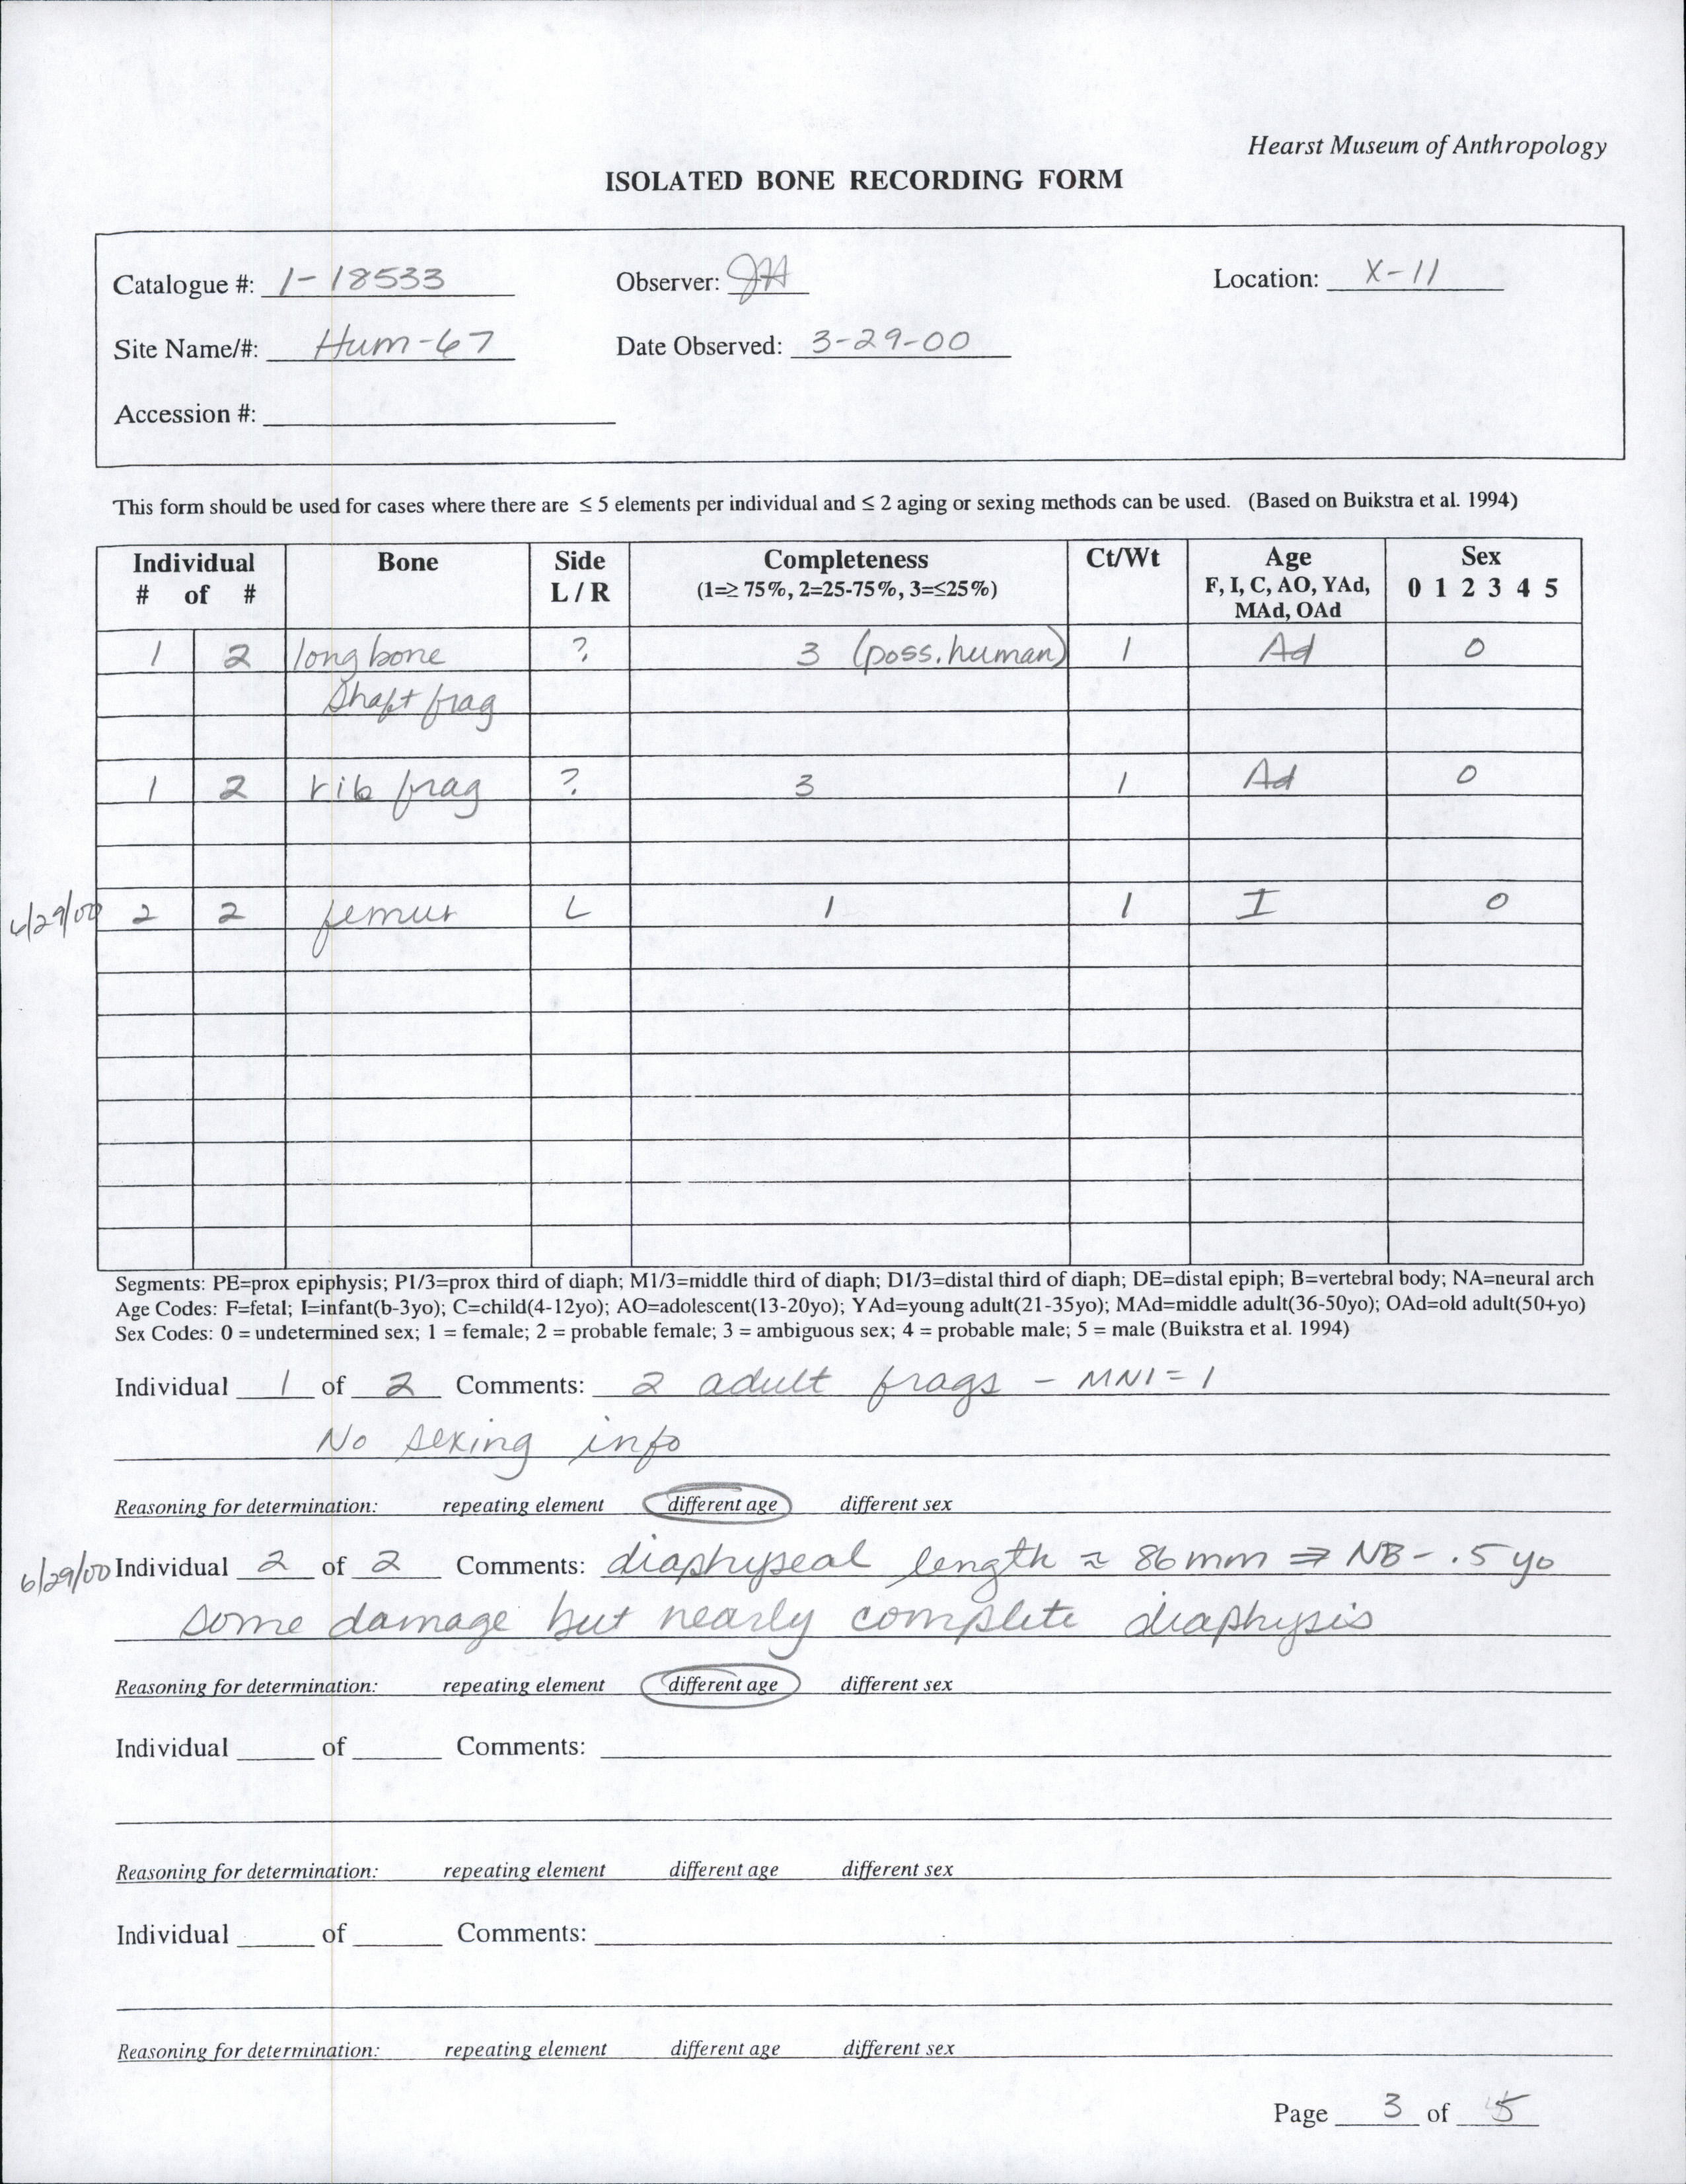 Hearst Museum of Anthropology
ISOLATED BONE RECORDING FORM
Catalogue #: 1-18533 Observer: JH Location: X-11
Site Name/#: Hum-67 Date Observed: 3-29-00
Accession #:
This form should be used for cases where there are ≤ 5 elements per individual and ≤ 2 aging or sexing methods can be used. (Based on Buikstra et al. 1994)
Individual Bone Side Completeness Ct/Wt Age Sex
# of # L / R (1=≥ 75%, 2=25-75%, 3=≤25%) F, I, C, AO, YAd, 0 1 2 3 4 5
MAd, OAd
1 2 long bone ? 3 (poss. human) 1 Ad 0
shaft frag
1 2 rib frag ? 3 1 Ad 0
6/29/00 2 2 femur L 1 1 I 0
Segments: PE=prox epiphysis; P1/3=prox third of diaph; M1/3=middle third of diaph; D1/3=distal third of diaph; DE=distal epiph; B=vertebral body; NA=neural arch
Age Codes: F=fetal; I=infant(b-3yo); C=child(4-12yo); AO=adolescent(13-20yo); YAd=young adult(21-35yo); MAd=middle adult(36-50yo); OAd=old adult(50+yo)
Sex Codes: 0 = undetermined sex; 1 = female; 2 = probable female; 3 = ambiguous sex; 4 = probable male; 5 = male (Buikstra et al. 1994)
Individual 1 of 2 Comments: 2 adult frags - MNI = 1
No sexing info
Reasoning for determination: repeating element different age different sex
6/29/00 Individual 2 of 2 Comments: diaphyseal length ≈ 86 mm ⇒ NB - .5 yo
some damage but nearly complete diaphysis
Reasoning for determination: repeating element different age different sex
Individual of Comments:
Reasoning for determination: repeating element different age different sex
Individual of Comments:
Reasoning for determination: repeating element different age different sex
Page 3 of 5